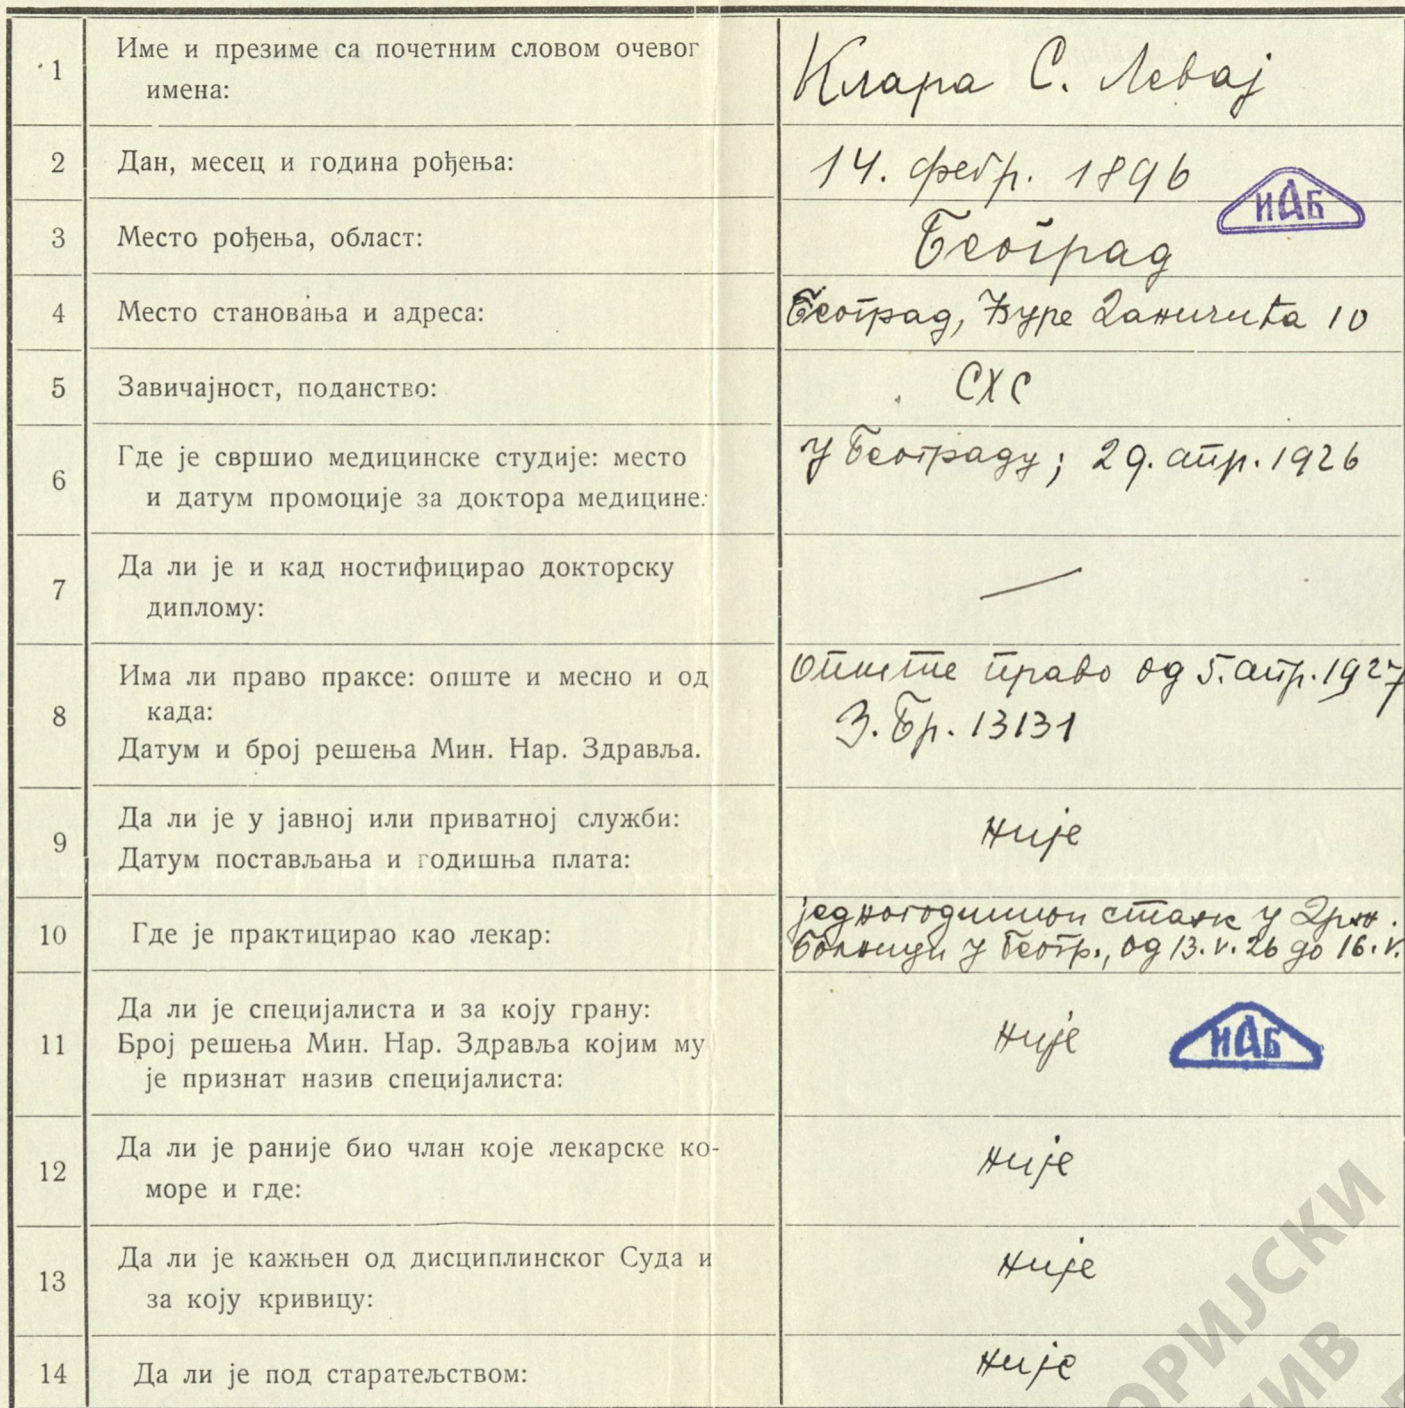 1
Име и презиме са почетним словом очевог
имена:
Клара С. Левај
2
Дан, месец и година рођења:
14. фебр. 1896
ИАБ
3
Место рођења, област:
Београд
4
Место становања и адреса:
Београд, Ђуре Даничића 10
5
Завичајност, поданство:
СХС
6
Где је свршио медицинске студије: место
и датум промоције за доктора медицине:
у Београду; 29. апр. 1926
7
Да ли је и кад ностифицирао докторску
диплому:
—
8
Има ли право праксе: опште и месно и од
када:
Датум и број решења Мин. Нар. Здравља.
Опште право од 5. апр. 1927
З. Бр. 13131
9
Да ли је у јавној или приватној служби:
Датум постављања и годишња плата:
није
10
Где је практицирао као лекар:
једногодишњи стаж у Држ.
болници у Беогр., од 13. V. 26 до 16. V.
11
Да ли је специјалиста и за коју грану:
Број решења Мин. Нар. Здравља којим му
је признат назив специјалиста:
није
ИАБ
12
Да ли је раније био члан које лекарске ко-
море и где:
није
13
Да ли је кажњен од дисциплинског Суда и
за коју кривицу:
није
14
Да ли је под старатељством:
није